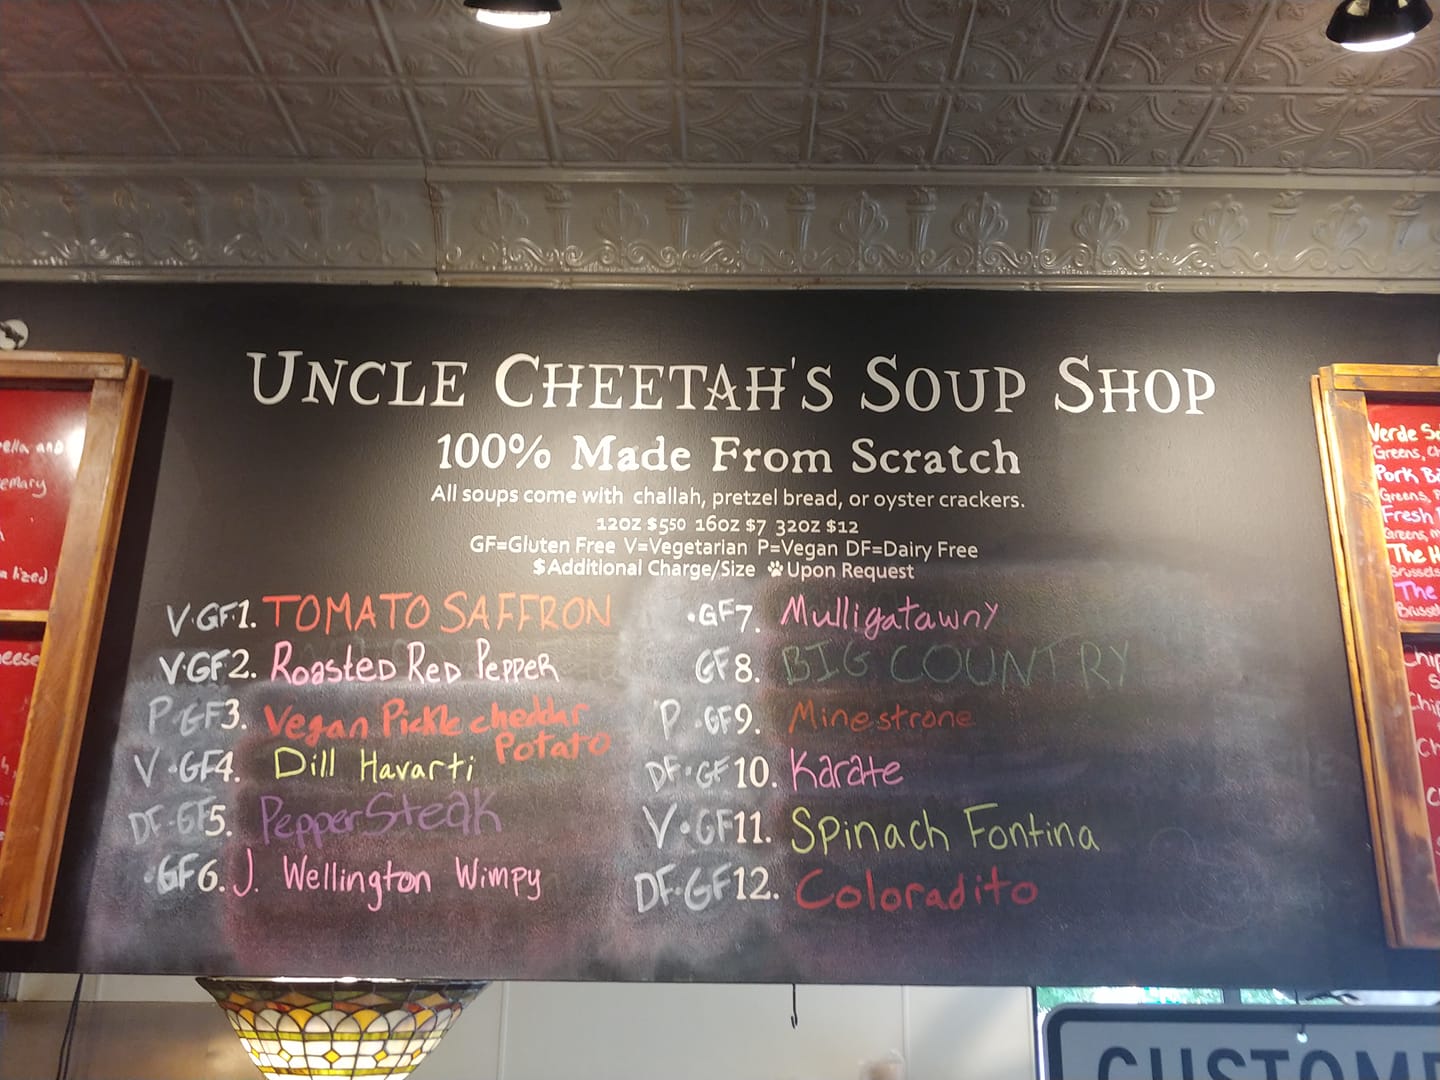 UNCLE CHEETAH'S SOUP SHOP
100% Made From Scratch
All soups come with challah, pretzel bread, or oyster crackers.
12oz $5.50 16oz $7 32oz $12
GF=Gluten Free V=Vegetarian P=Vegan DF=Dairy Free
$Additional Charge/Size Upon Request
V·GF 1. TOMATO SAFFRON
V·GF 2. Roasted Red Pepper
P·GF 3. Vegan Pickle cheddar
Potato
V·GF 4. Dill Havarti
DF·GF 5. Pepper Steak
·GF 6. J. Wellington Wimpy
·GF 7. Mulligatawny
GF 8. BIG COUNTRY
P·GF 9. Minestrone
DF·GF 10. Karate
V·GF 11. Spinach Fontina
DF·GF 12. Coloradito
and
emary
eese
Verde
Greens,
Pork
Greens,
Fresh
Greens,
The
Brussels
The
CUSTOME